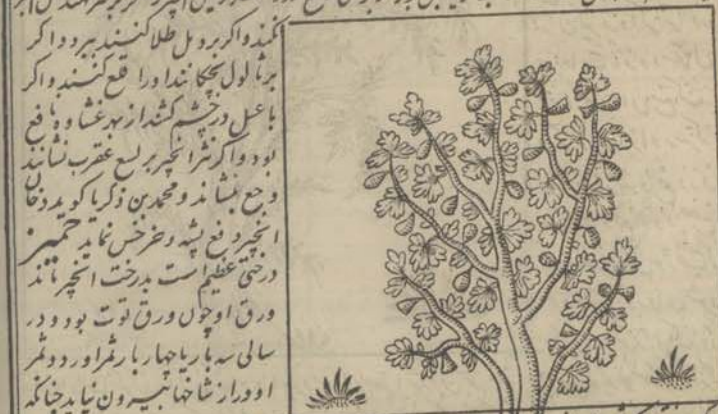 نکند و اکر بر دمل طلا کنند ببرد و اکر
بر ثالول بچکانند او را قلع کنند و اکر
با عسل در چشم کشند از بهر غشاوه نافع
بود و اکر نثر انجیر بر لسع عقرب نشانند
وجع بنشاند و محمد بن زکریا کوید دخان
انجیر دفع پشه و نماید جمیز
درختی عظیم است بدرخت انجیر ماند
ورق او چون ورق توت بود و در
سالی سه بار یا چهار بار ثمر آورد و ثمر
او و از شاخها بیرون نیاید چنانکه